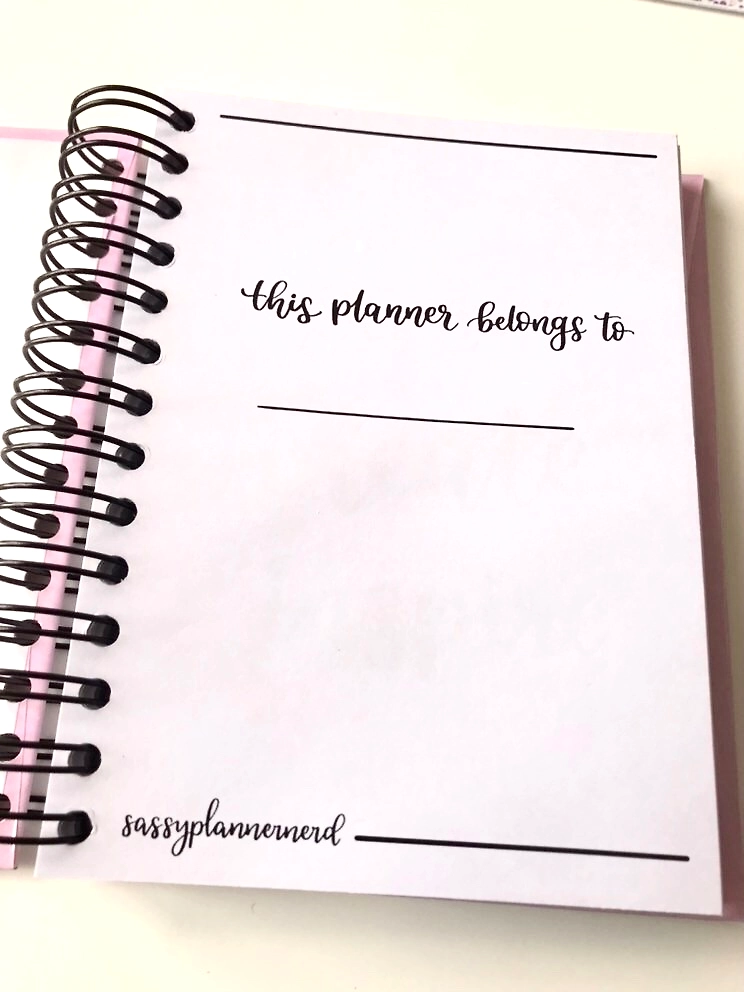 this planner belongs to
sassyplannernerd